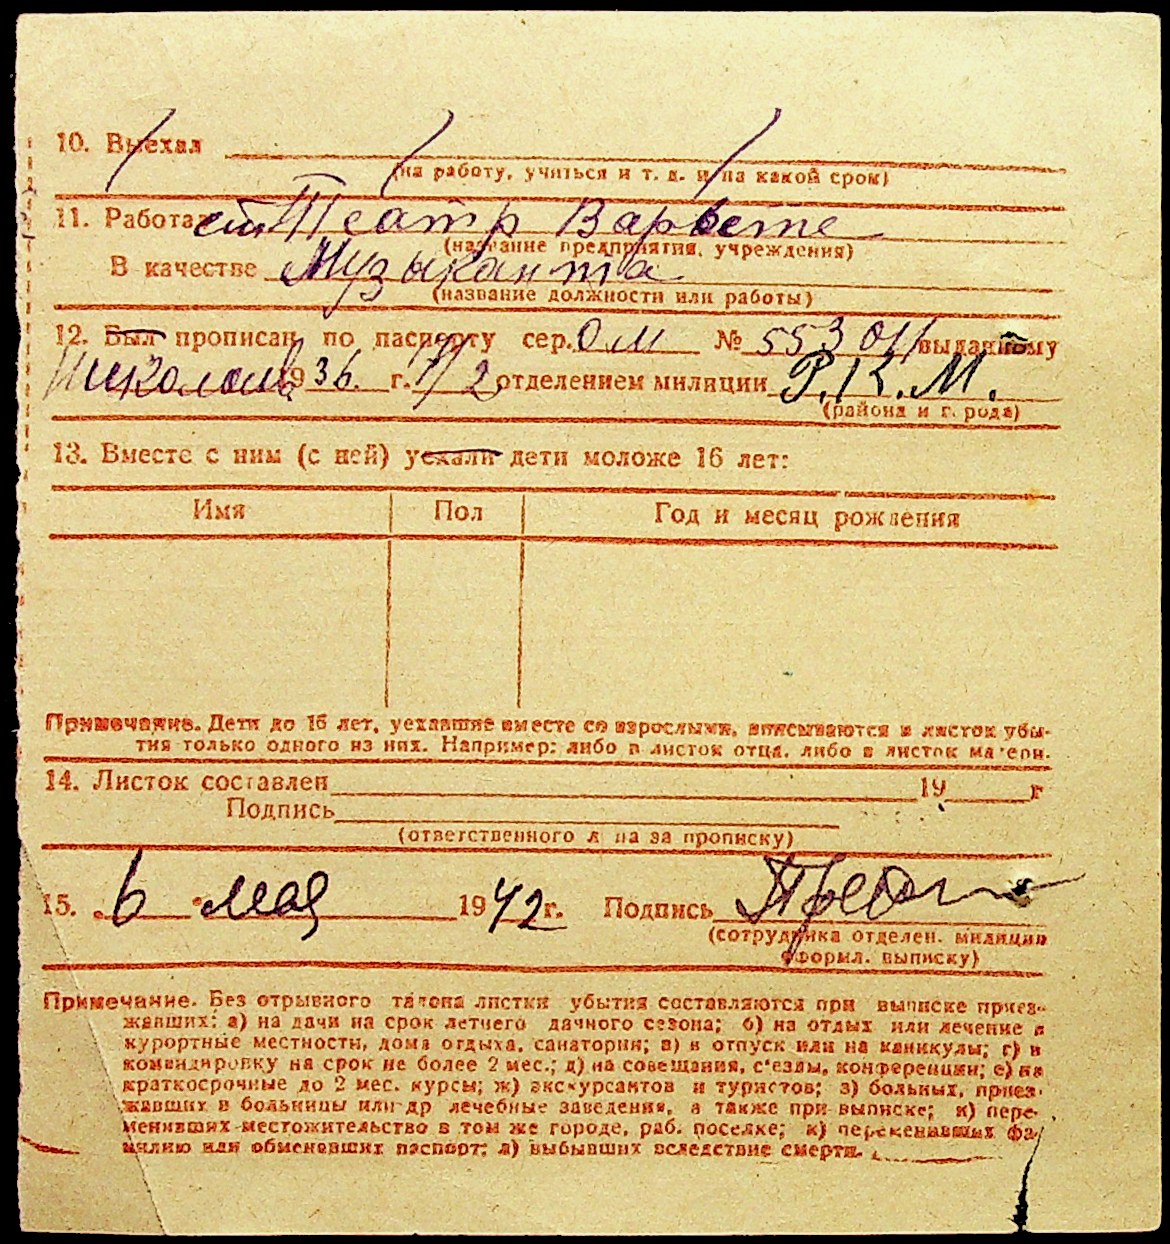 10. Выехал
(на работу, учиться и т. д. и на какой срок)
11. Работал Театр Варьете
(название предприятия, учреждения)
В качестве Музыканта
(название должности или работы)
12. Был прописан по паспорту сер. ОМ № 553011 выданному
1936. г. 1/2 отделением милиции Р.К.М.
(района и города)
13. Вместе с ним (с ней) уехали дети моложе 16 лет:
Имя Пол Год и месяц рождения
Примечание. Дети до 16 лет, уехавшие вместе со взрослыми, вписываются в листок убы-
тия только одного из них. Например: либо в листок отца, либо в листок матери.
14. Листок составлен 19 г
Подпись
(ответственного лица за прописку)
15. „6“ мая 1942 г. Подпись
(сотрудника отделен. милиции
оформл. выписку)
Примечание. Без отрывного талона листки убытия составляются при выписке приез-
жавших: а) на дачи на срок летнего дачного сезона; б) на отдых или лечение в
курортные местности, дома отдыха, санатории; в) в отпуск или на каникулы; г) в
командировку на срок не более 2 мес.; д) на совещания, с'езды, конференции; е) на
краткосрочные до 2 мес. курсы; ж) экскурсантов и туристов; з) больных, приез-
жавших в больницы или др лечебные заведения, а также при выписке; и) пере-
менивших местожительство в том же городе, раб. поселке; к) переменивших фа-
милию или обменявших паспорт; л) выбывших вследствие смерти.